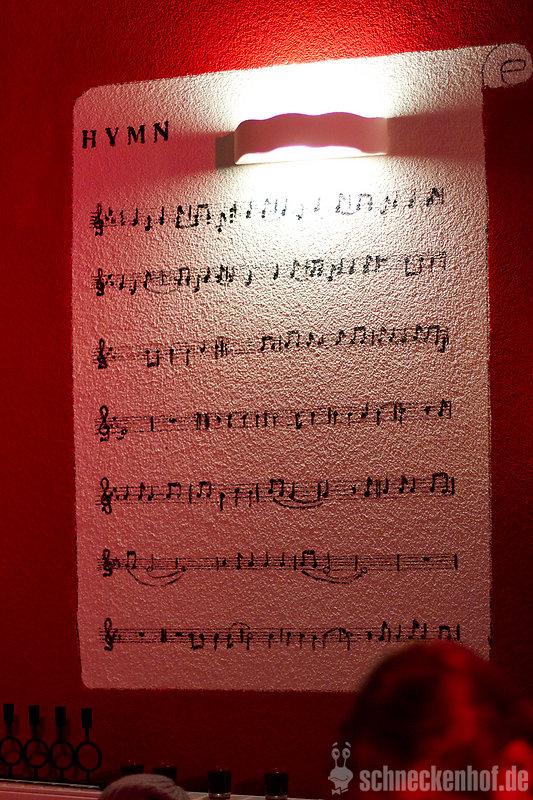 HYMN
schneckenhof.de